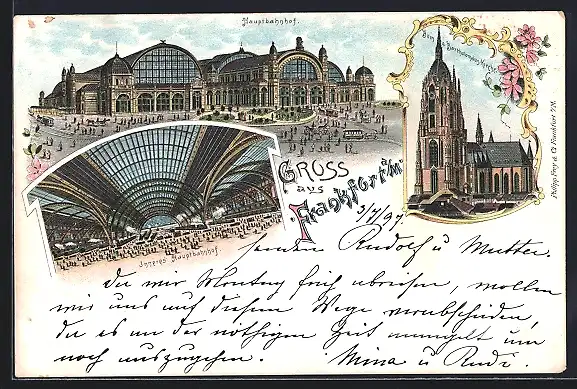 Hauptbahnhof.
Dom St. Bartholomäus Kirche
GRUSS
aus
Frankfurt a/M
Inneres Hauptbahnhof.
Philipp Frey & Co Frankfurt a/M.
3/7/97.
senden Rudolf u Mutter.
Da wir Montag früh abreisen, wollen
wir uns auf diesem Wege verabschieden,
da es an der nöthigen Zeit mangelt um
noch auszugehen. Mina u Rudi.